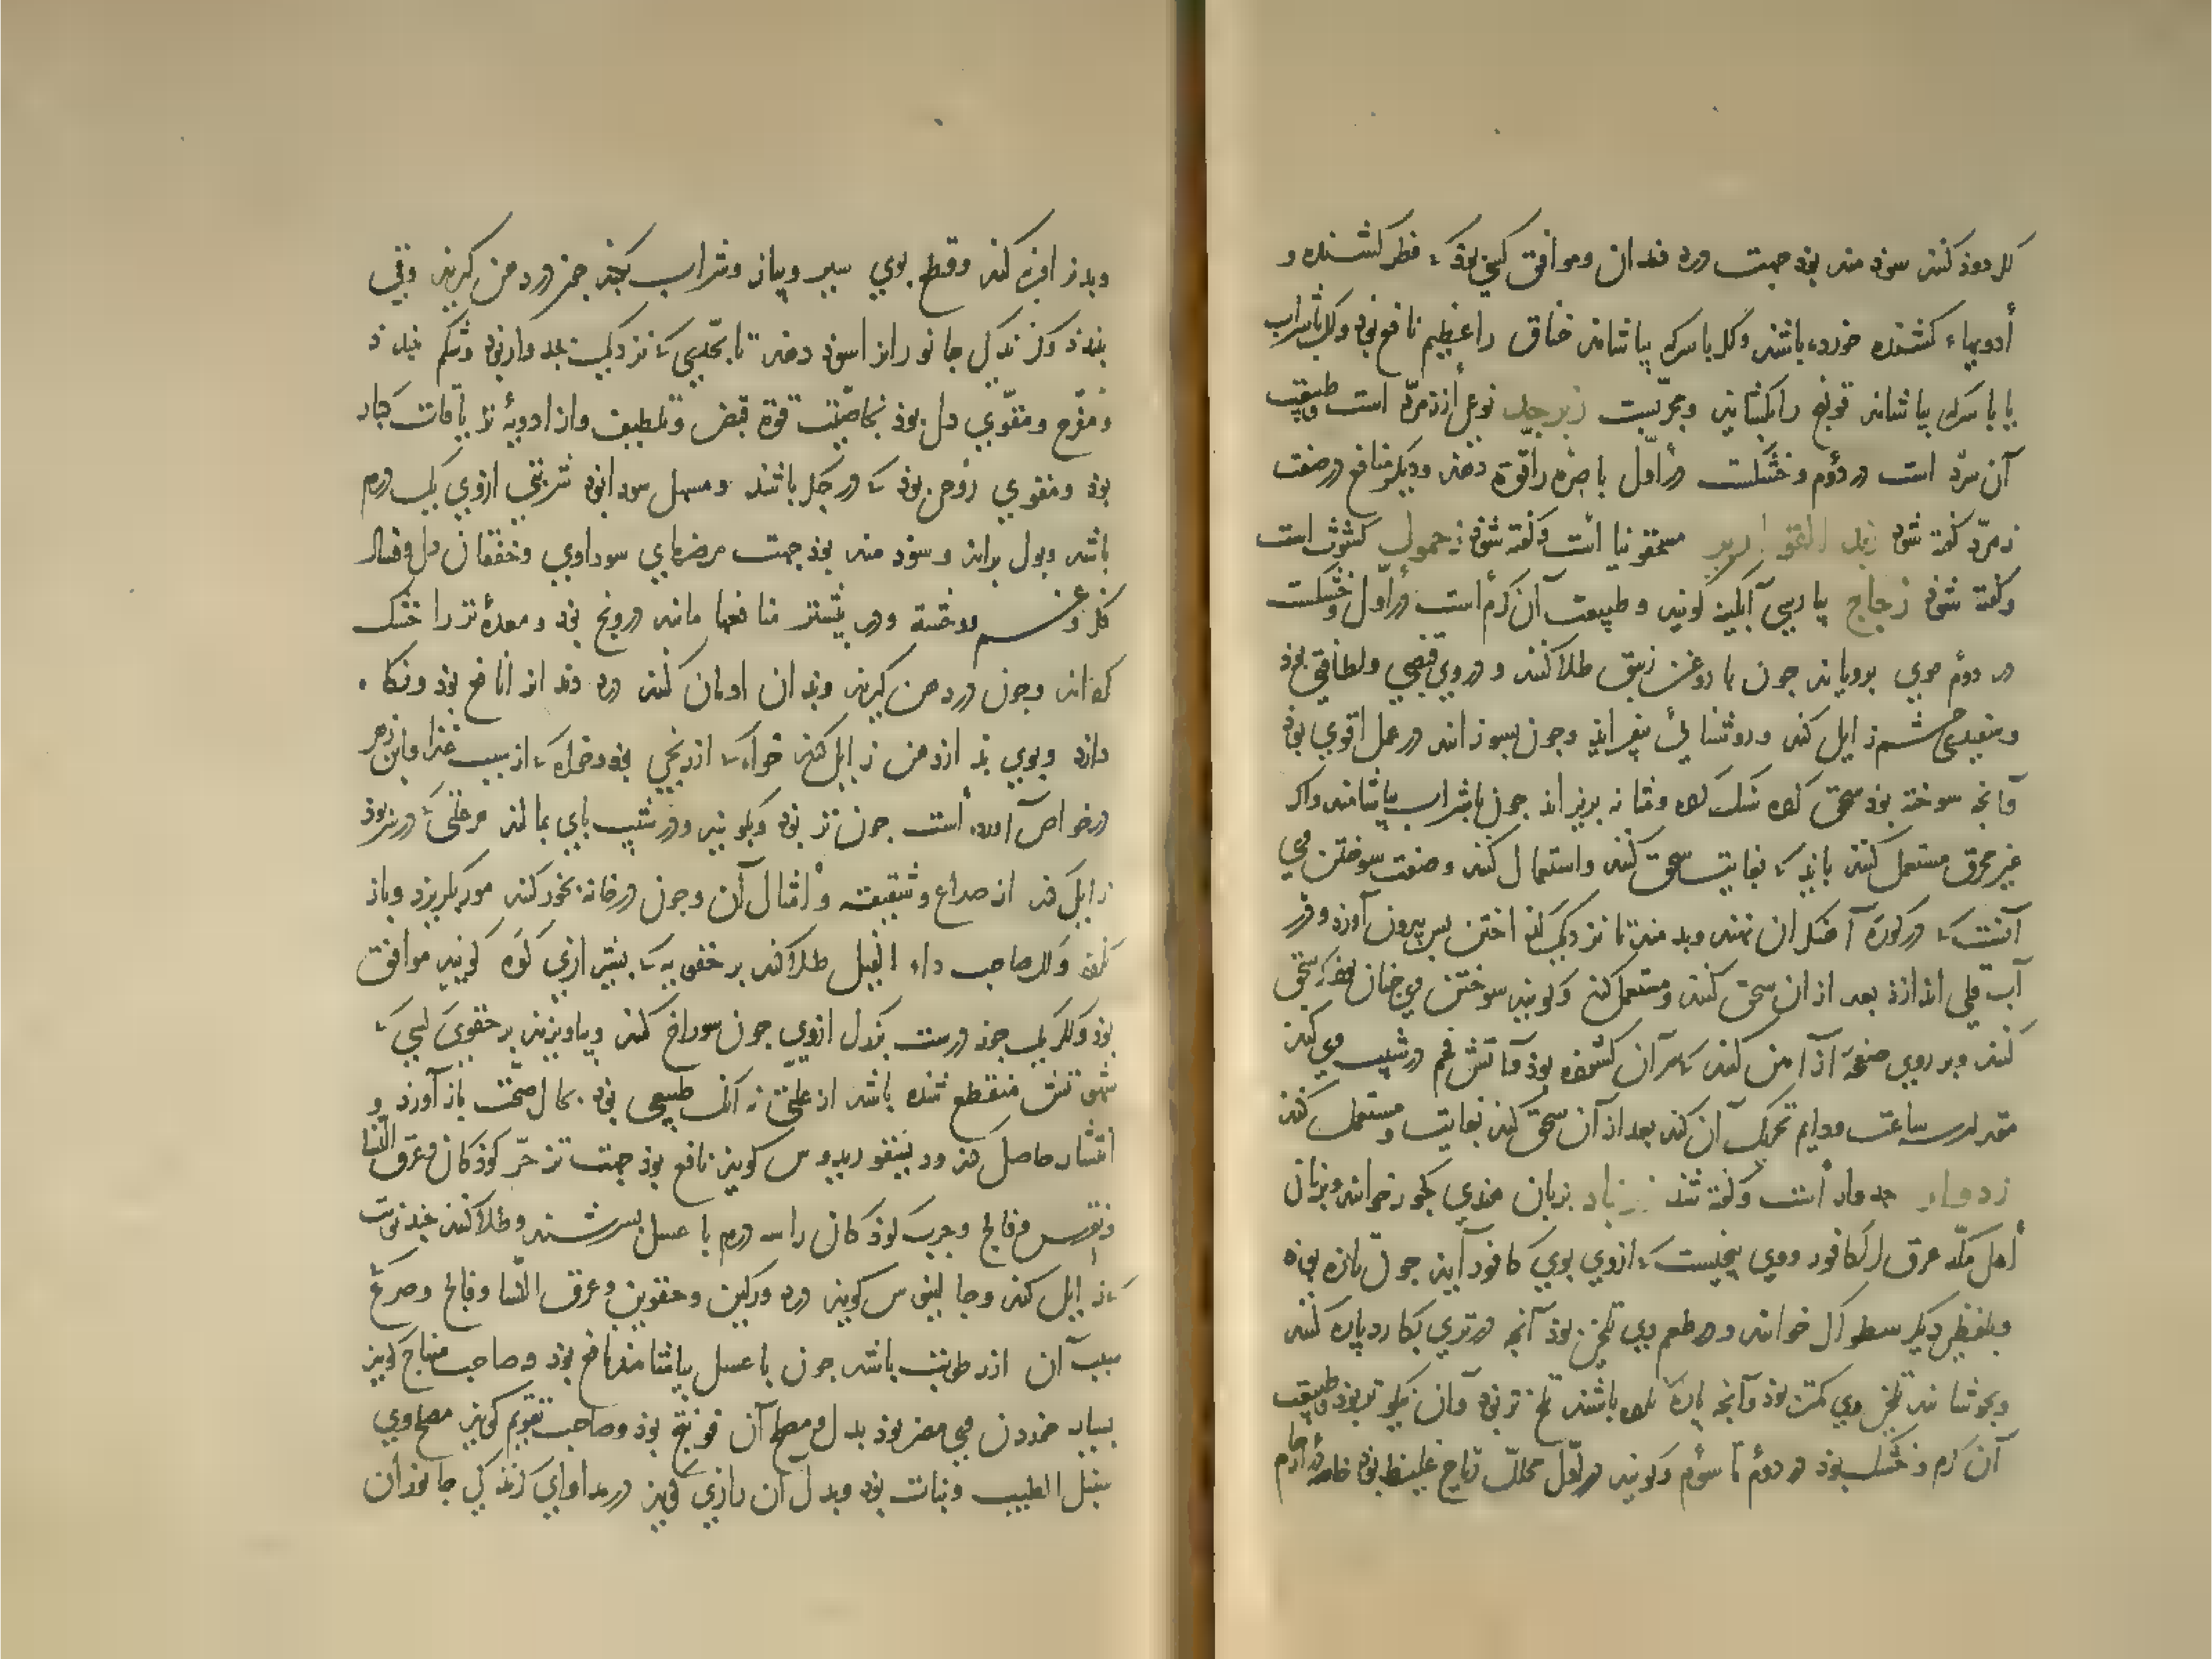 کل دود کنند سود مند بود جهت درد دندان و موافق کسی بود که فطر کشنده و
أدویهاء کشنده خورده باشند و کل با سرکه بیاشامند خناق را عظیم نافع بود و کل با شراب
یا با سرکه بیاشامند قولنج را بکشاید و مجرّبست زبرجد نوعی از زمرّد است و طبیعت
آن سرد است در دوّم و خشکست در اوّل باصره را قوّة دهد و دیکر منافع در صفت
زمرّد کفته شود زبل سقمونیا است و کفته شود زحمول کشوث است
و کفته شود زجاج پارسی آبکینه کویند و طبیعت آن کرم است در اوّل و خشکست
در دوّم موی برویاند چون با روغن زنبق طلا کنند و در وی قبضی و لطافتی بود
و سفیدی چشم زایل کند و روشنائی بیفزاید و چون بسوزانند در عمل اقوی بود
و آنچه سوخته بود سحق کرده سنک کرده و مثانه بریزاند چون با شراب بیاشامند و اکر
غیر محرق مستعمل کنند باید که بغایت سحق کنند و استعمال کنند و صفت سوختن وی
آنست که در کوره آهنکران نهند و بدمند تا نزدیک کداختن پس بیرون آورند و در
آب قلی اندازند بعد از آن سحق کنند و مستعمل کنند و کویند سوختن وی چنان بود که سحق
کنند و بر روی صفحه از آهن کنند که سر آن کشوده بود و آتش فحم در شیب وی کنند
مقدار سه ساعت و دایم تحریک آن کند بعد از آن سحق کنند بغایت و مستعمل کنند
زدوار جدوار است و کفته شد زرنباد بزبان هندی کجور خوانند و بزبان
أهل مکّه عرق الکافور و وی بیخیست که از وی بوی کافور آید چون تازه بود
و بلفظی دیکر سطوال خوانند و در طعم وی تلخی بود آنچه در تری بکارد پاره کنند
و بجوشانند تلخی وی کمتر بود و آنچه پاره کرده باشند تلخ تر بود و آن نیکوتر بود و طبیعت
آن کرم و خشک بود در دوّم تا سوّم و کویند در اوّل محلّل ریاح غلیظ بود خاصه در ارحام
و بدن را فربه کند و قطع بوی سیر و پیاز و شراب بکند چون در دهن کیرند و قی
ببندد و کزندکی جانوران را سود دهد تا بحدّی که نزدیک بجدوار بود و شکم ببندد
و مفرّح و مقوّی دل بود بخاصّیت قوّة قبض و تلطیف و از ادویهٔ تریاقات کبار
بود و مقوی روحی بود که در جکر باشد و مسهل سودا بود شربتی از وی یک درم
باشد و بول براند و سود مند بود جهت مرضهای سوداوی و خفقان دل و فساد
فکر و غم و در بیشتر منافعها مانند درونج بود و معدهٔ تر را خشک
کرداند و چون در دهن کیرند و بدان ادمان کنند درد دندان را نافع بود و نکاه
دارد و بوی بد از دهن زایل کند خواه که از بخی بود و خواه که از سبب غذا و ابن زهر
در خواص آورده است چون تر بود و بکوبند و در شیب پای بمالند هر علتی که در سر بود
زایل کند از صداع و شقیقه و امثال آن و چون در خانه بخور کنند مور بکریزد و باز
نکردد و اکر صاحب داء الفیل طلا کند بر حقوی به که بیشتر از آن کوره کویند موافق
بود و اکر یک جزو درست بزرک از وی چون سوراخ کنند و بیاویزند بر حقوی کسی که
شهوتش منقطع شده باشد از علتی نه آنک طبیعی بود بحال صحّت باز آورد و
انتشار حاصل کند و دیسقوریدوس کوید نافع بود جهت تزحّر کودکان و عرق النّسا
و نقرس و فالج و جرب کودکان را سه درم با عسل بسرشند و طلا کنند
زایل کند و جالینوس کوید درد ورکین و حقوین و عرق النّسا و فالج و صرع که
سبب آن از رطوبت باشد چون با عسل بیاشامند نافع بود و صاحب منهاج کوید
بسیار خوردن وی مضر بود بدل و مصلح آن فوتنج بود و صاحب تقویم کوید مصلح وی
سنبل الطیب و نبات بود و بدل آن رازی کوید در مداوای کزندکی جانوران